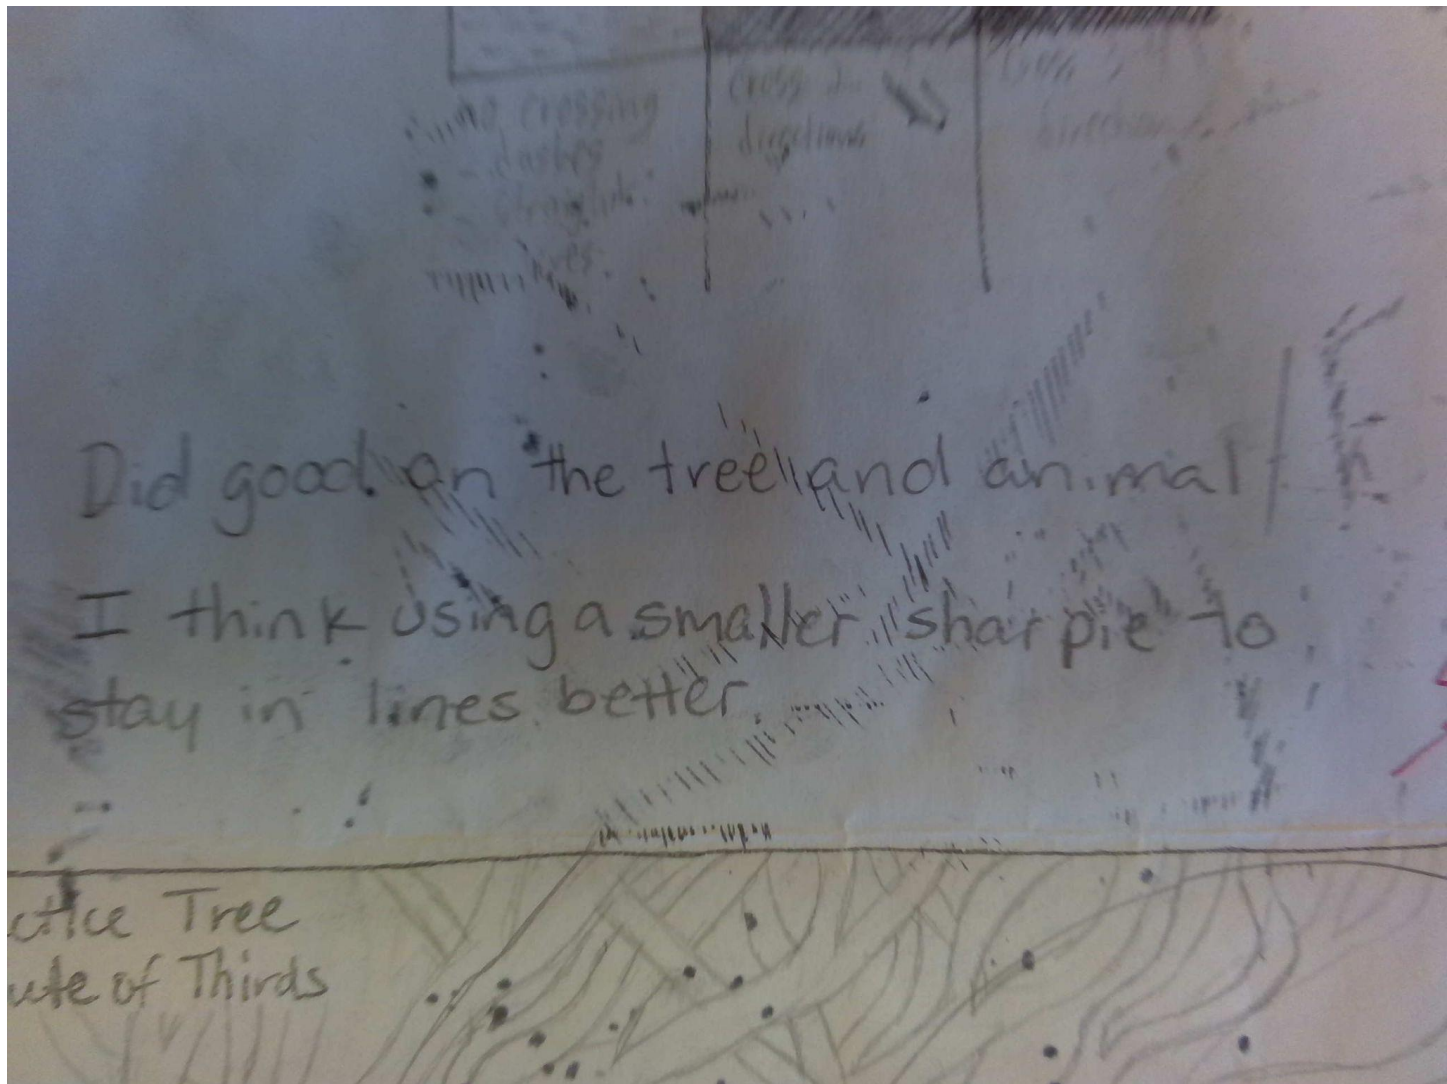 no crossing
- dashes
- straight
cross 2
directions
Did good on the tree and animal
I think using a smaller sharpie to
stay in lines better.
ctice Tree
of Thirds